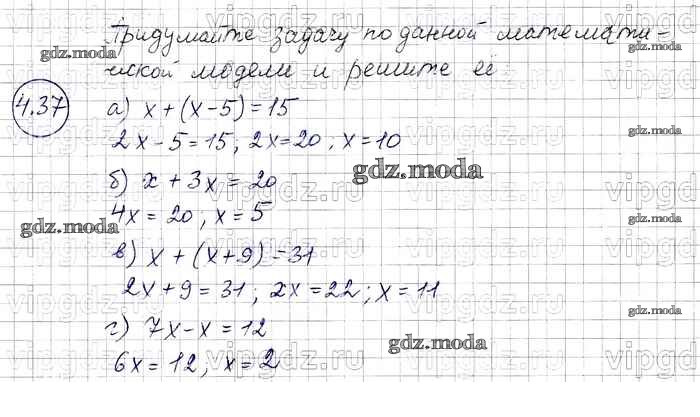 Придумайте задачу по данной математи-
ческой модели и решите её
4.37
а) x + (x - 5) = 15
2x - 5 = 15; 2x = 20; x = 10
б) x + 3x = 20
4x = 20, x = 5
в) x + (x + 9) = 31
2x + 9 = 31; 2x = 22; x = 11
г) 7x - x = 12
6x = 12, x = 2
gdz.moda
gdz.moda
gdz.moda
gdz.moda
gdz.moda
gdz.moda
gdz.moda
gdz.moda
vipgdz.ru